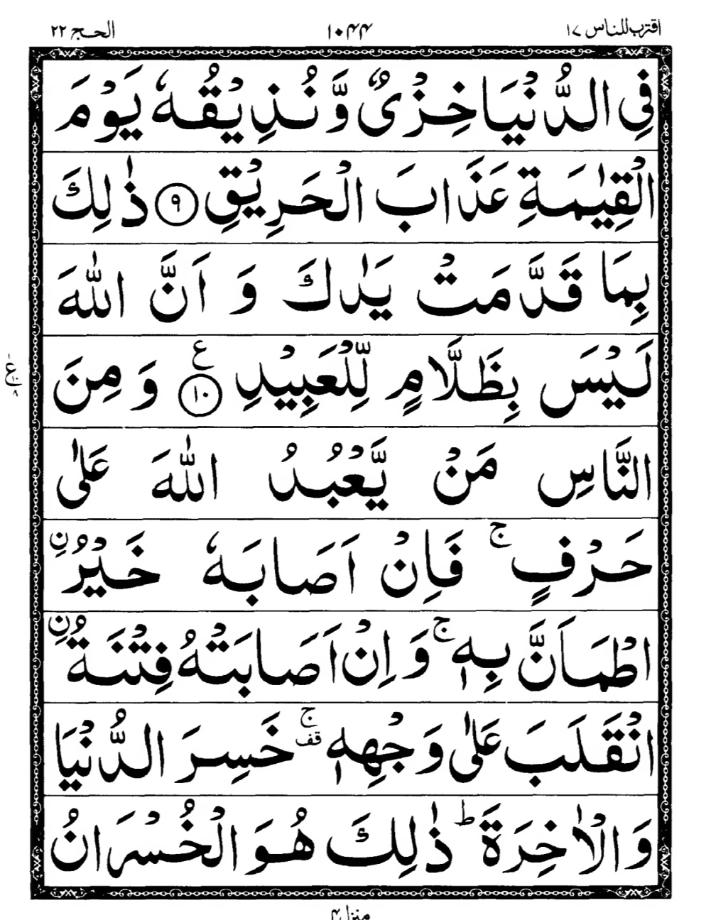 اقترب للناس ١٧ ١٠۴۴ الحج ٢٢
فِى الدُّنْيَا خِزْىٌ وَّ نُذِيْقُهٗ يَوْمَ
الْقِيٰمَةِ عَذَابَ الْحَرِيْقِ ۹ ذٰلِكَ
بِمَا قَدَّمَتْ يَدٰكَ وَ اَنَّ اللّٰهَ
لَيْسَ بِظَلَّامٍ لِّلْعَبِيْدِ ۱۰ ع وَ مِنَ
ع ٨
النَّاسِ مَنْ يَّعْبُدُ اللّٰهَ عَلٰى
حَرْفٍ ۚ فَاِنْ اَصَابَهٗ خَيْرُ ۨ
اطْمَاَنَّ بِهٖ ۚ وَ اِنْ اَصَابَتْهُ فِتْنَةُ ۨ
انْقَلَبَ عَلٰى وَجْهِهٖ ۚ قف خَسِرَ الدُّنْيَا
وَالْاٰخِرَةَ ؕ ذٰلِكَ هُوَ الْخُسْرَانُ
منزل ۴